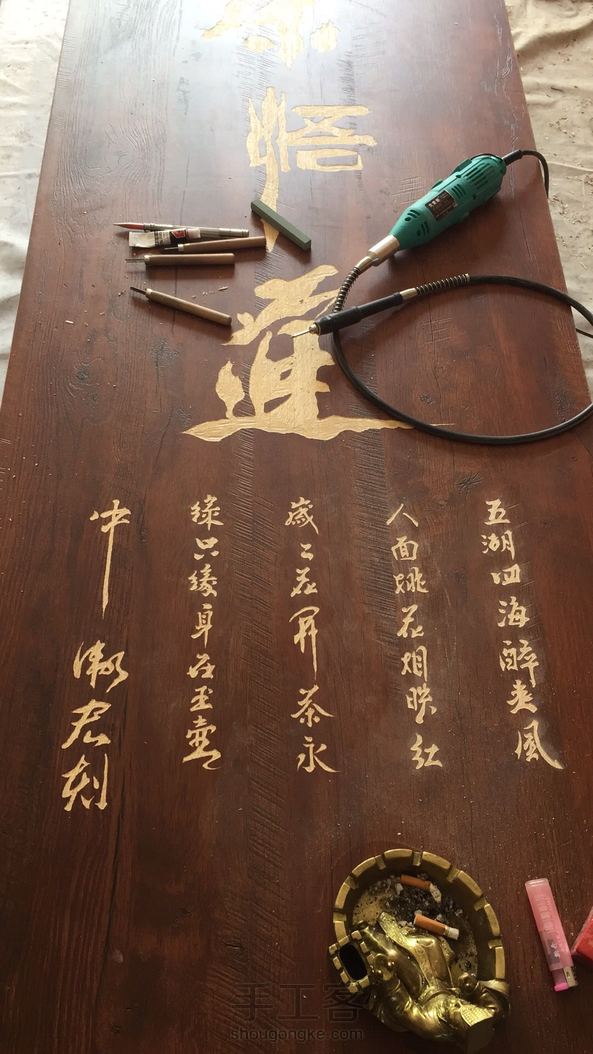 悟
道
五湖四海醉爽風
人面桃花相映红
歲々花開茶永
綠只緣身在玉壺
中
傲君刻
手工客
shougongke.com